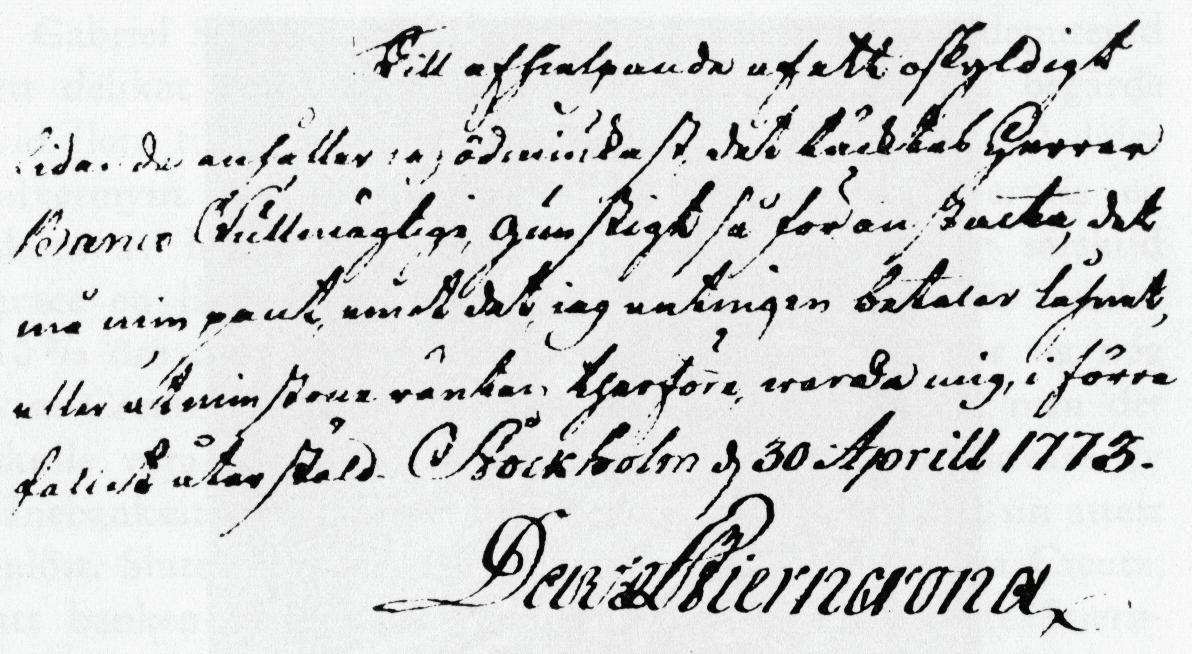 Till afhielpande af ett oskyldigt
lidande anhåller jag ödmiukast, det täcktes Herrar
Banco Fullmägtige, gunstigt så föranstalta, det
må min pant, emot det, iag antingen betalar lahnet,
eller åtminstone räntan therföre, warda mig, i förra
återstäld. Stockholm d 30 Aprill 1773.
Bierncrona